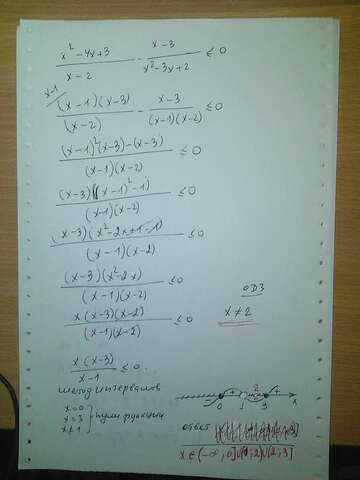 (x² - 4x + 3)/(x - 2) - (x - 3)/(x² - 3x + 2) ≤ 0
x-1
((x - 1)(x - 3))/(x - 2) - (x - 3)/((x - 1)(x - 2)) ≤ 0
((x - 1)²(x - 3) - (x - 3))/((x - 1)(x - 2)) ≤ 0
((x - 3)((x - 1)² - 1))/((x - 1)(x - 2)) ≤ 0
((x - 3)(x² - 2x + 1 - 1))/((x - 1)(x - 2)) ≤ 0
((x - 3)(x² - 2x))/((x - 1)(x - 2)) ≤ 0
ОДЗ
(x(x - 3)(x - 2))/((x - 1)(x - 2)) ≤ 0
x ≠ 2
(x(x - 3))/(x - 1) ≤ 0
метод интервалов
- + 2 +
0 1 3 x
x = 0
x = 3
x ≠ 1
нули функции
ответ
x ∈ (-∞, 0] ∪ (1; 2) ∪ (2, 3]